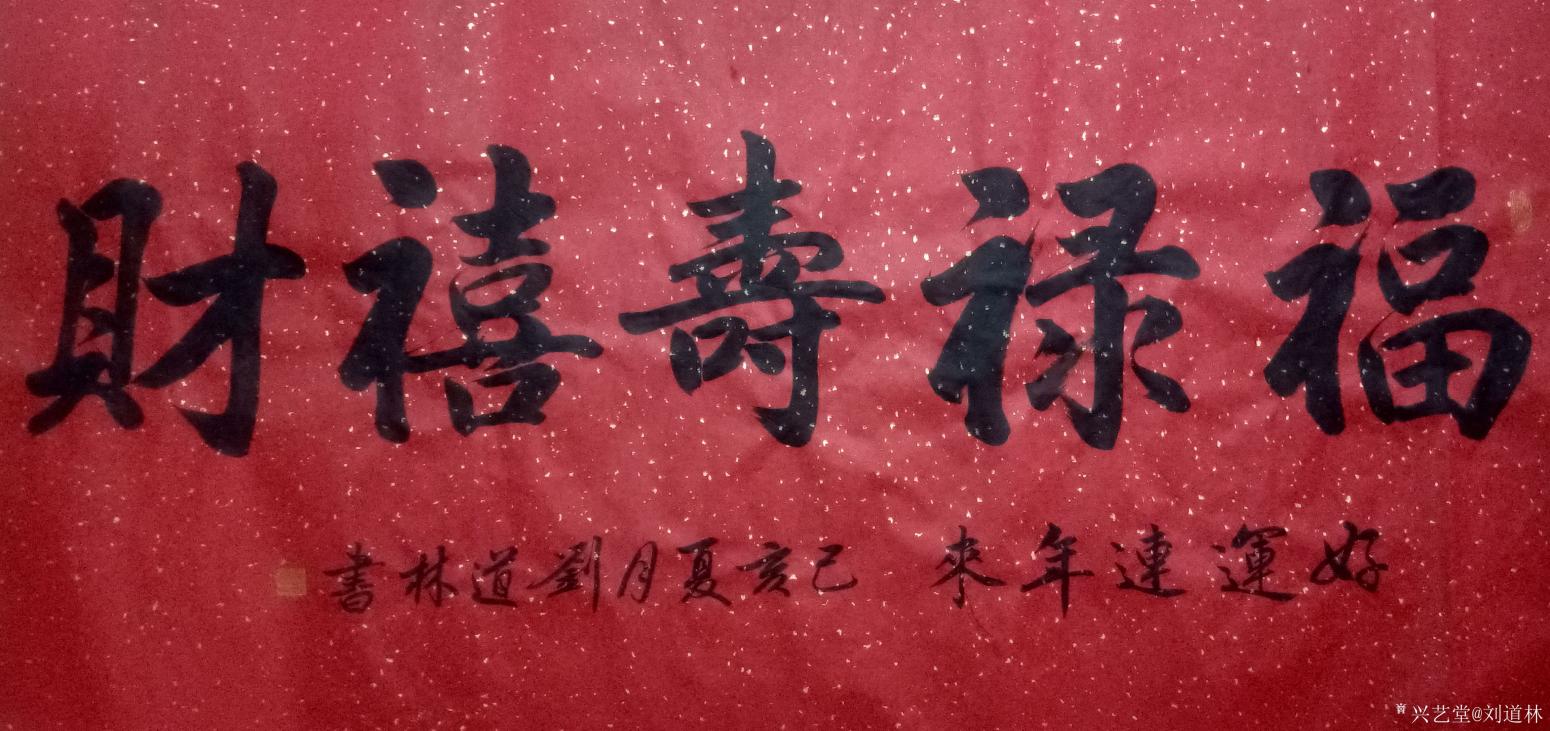 福禄壽禧財
好運連年來 己亥夏月劉道林書
兴艺堂@刘道林